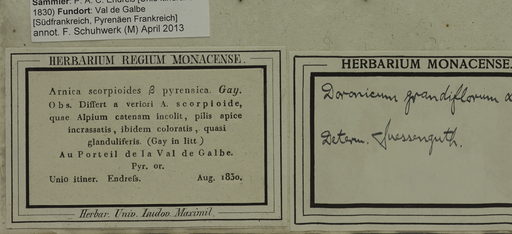 1830) Fundort: Val de Galbe
[Südfrankreich, Pyrenäen Frankreich]
annot. F. Schuhwerk (M) April 2013
HERBARIUM REGIUM MONACENSE.
Arnica scorpioides β pyrenaica. Gay.
Obs. Differt a veriori A. scorpioide,
quae Alpium catenam incolit, pilis apice
incrassatis, ibidem coloratis, quasi
glanduliferis. (Gay in litt.)
Au Porteil de la Val de Galbe.
Pyr. or.
Unio itiner. Endreſs. Aug. 1830.
Herbar. Univ. Ludov. Maximil.
HERBARIUM MONACENSE.
Doronicum grandiflorum
Determ. Suessenguth.